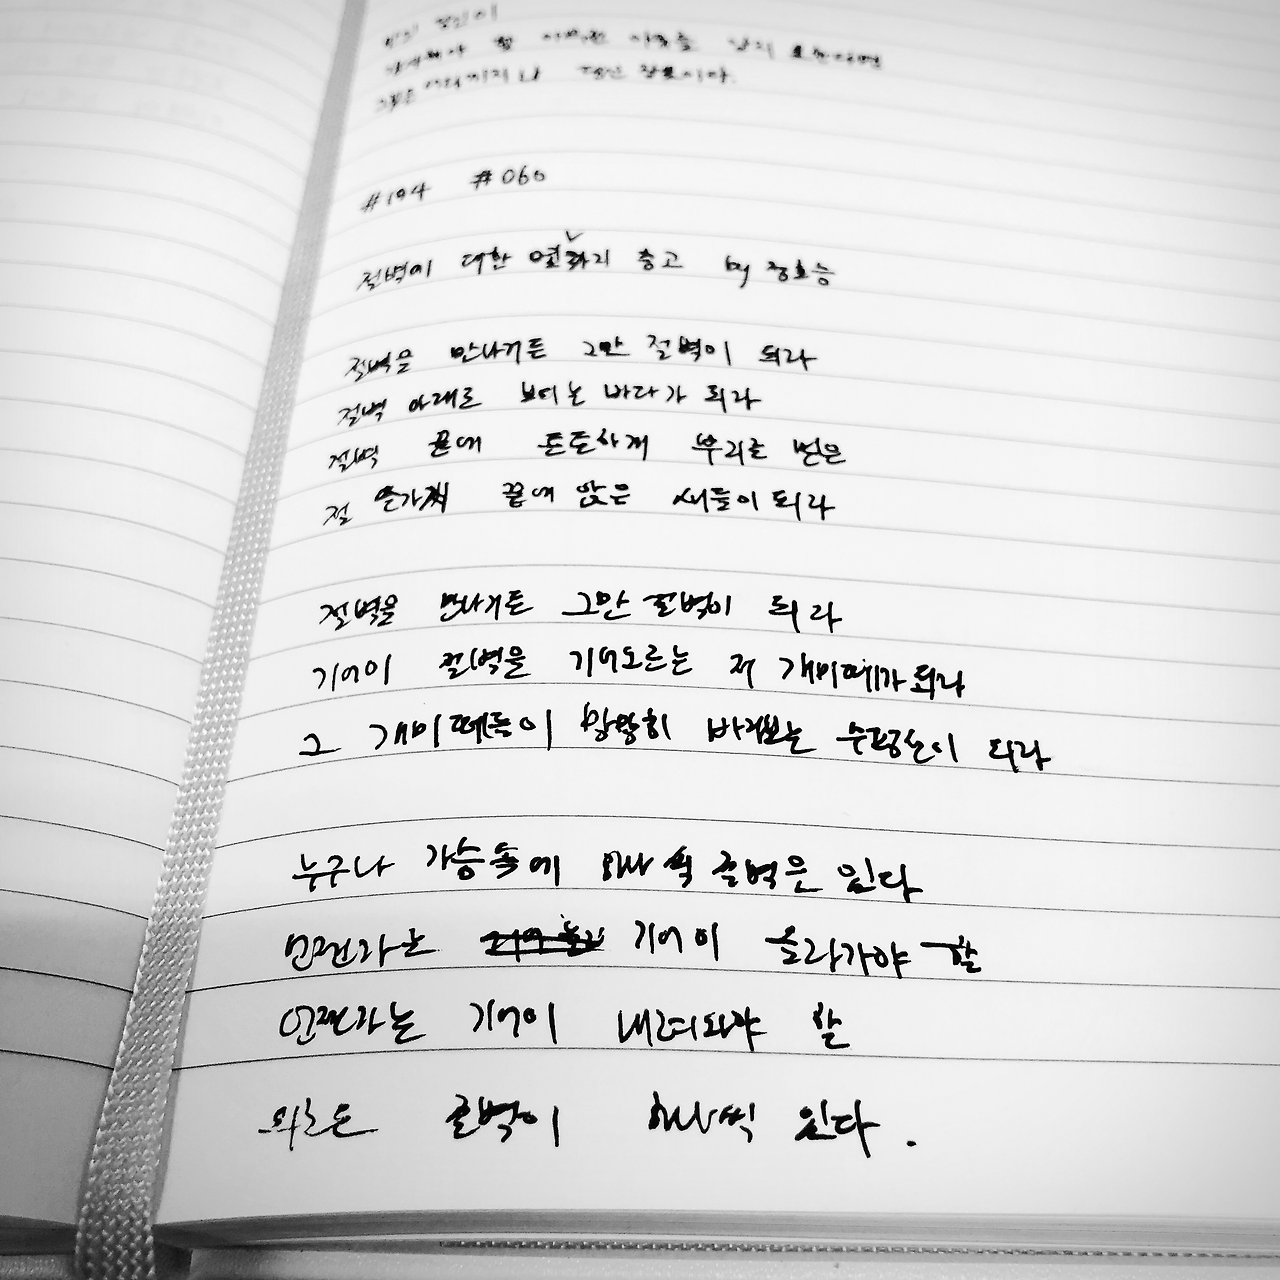 #194 #060
절벽에 대한 몇가지 충고 by 정호승
절벽을 만나거든 그만 절벽이 되라
절벽 아래로 보이는 바다가 되라
절벽 끝에 튼튼하게 뿌리를 뻗은
저 솔가지 끝에 앉은 새들이 되라
절벽을 만나거든 그만 절벽이 되라
기어이 절벽을 기어오르는 저 개미떼가 되라
그 개미떼들이 망망히 바라보는 수평선이 되라
누구나 가슴속에 하나씩 절벽은 있다
언젠가는 기어이 올라가야 할
언젠가는 기어이 내려와야 할
외로운 절벽이 하나씩 있다.